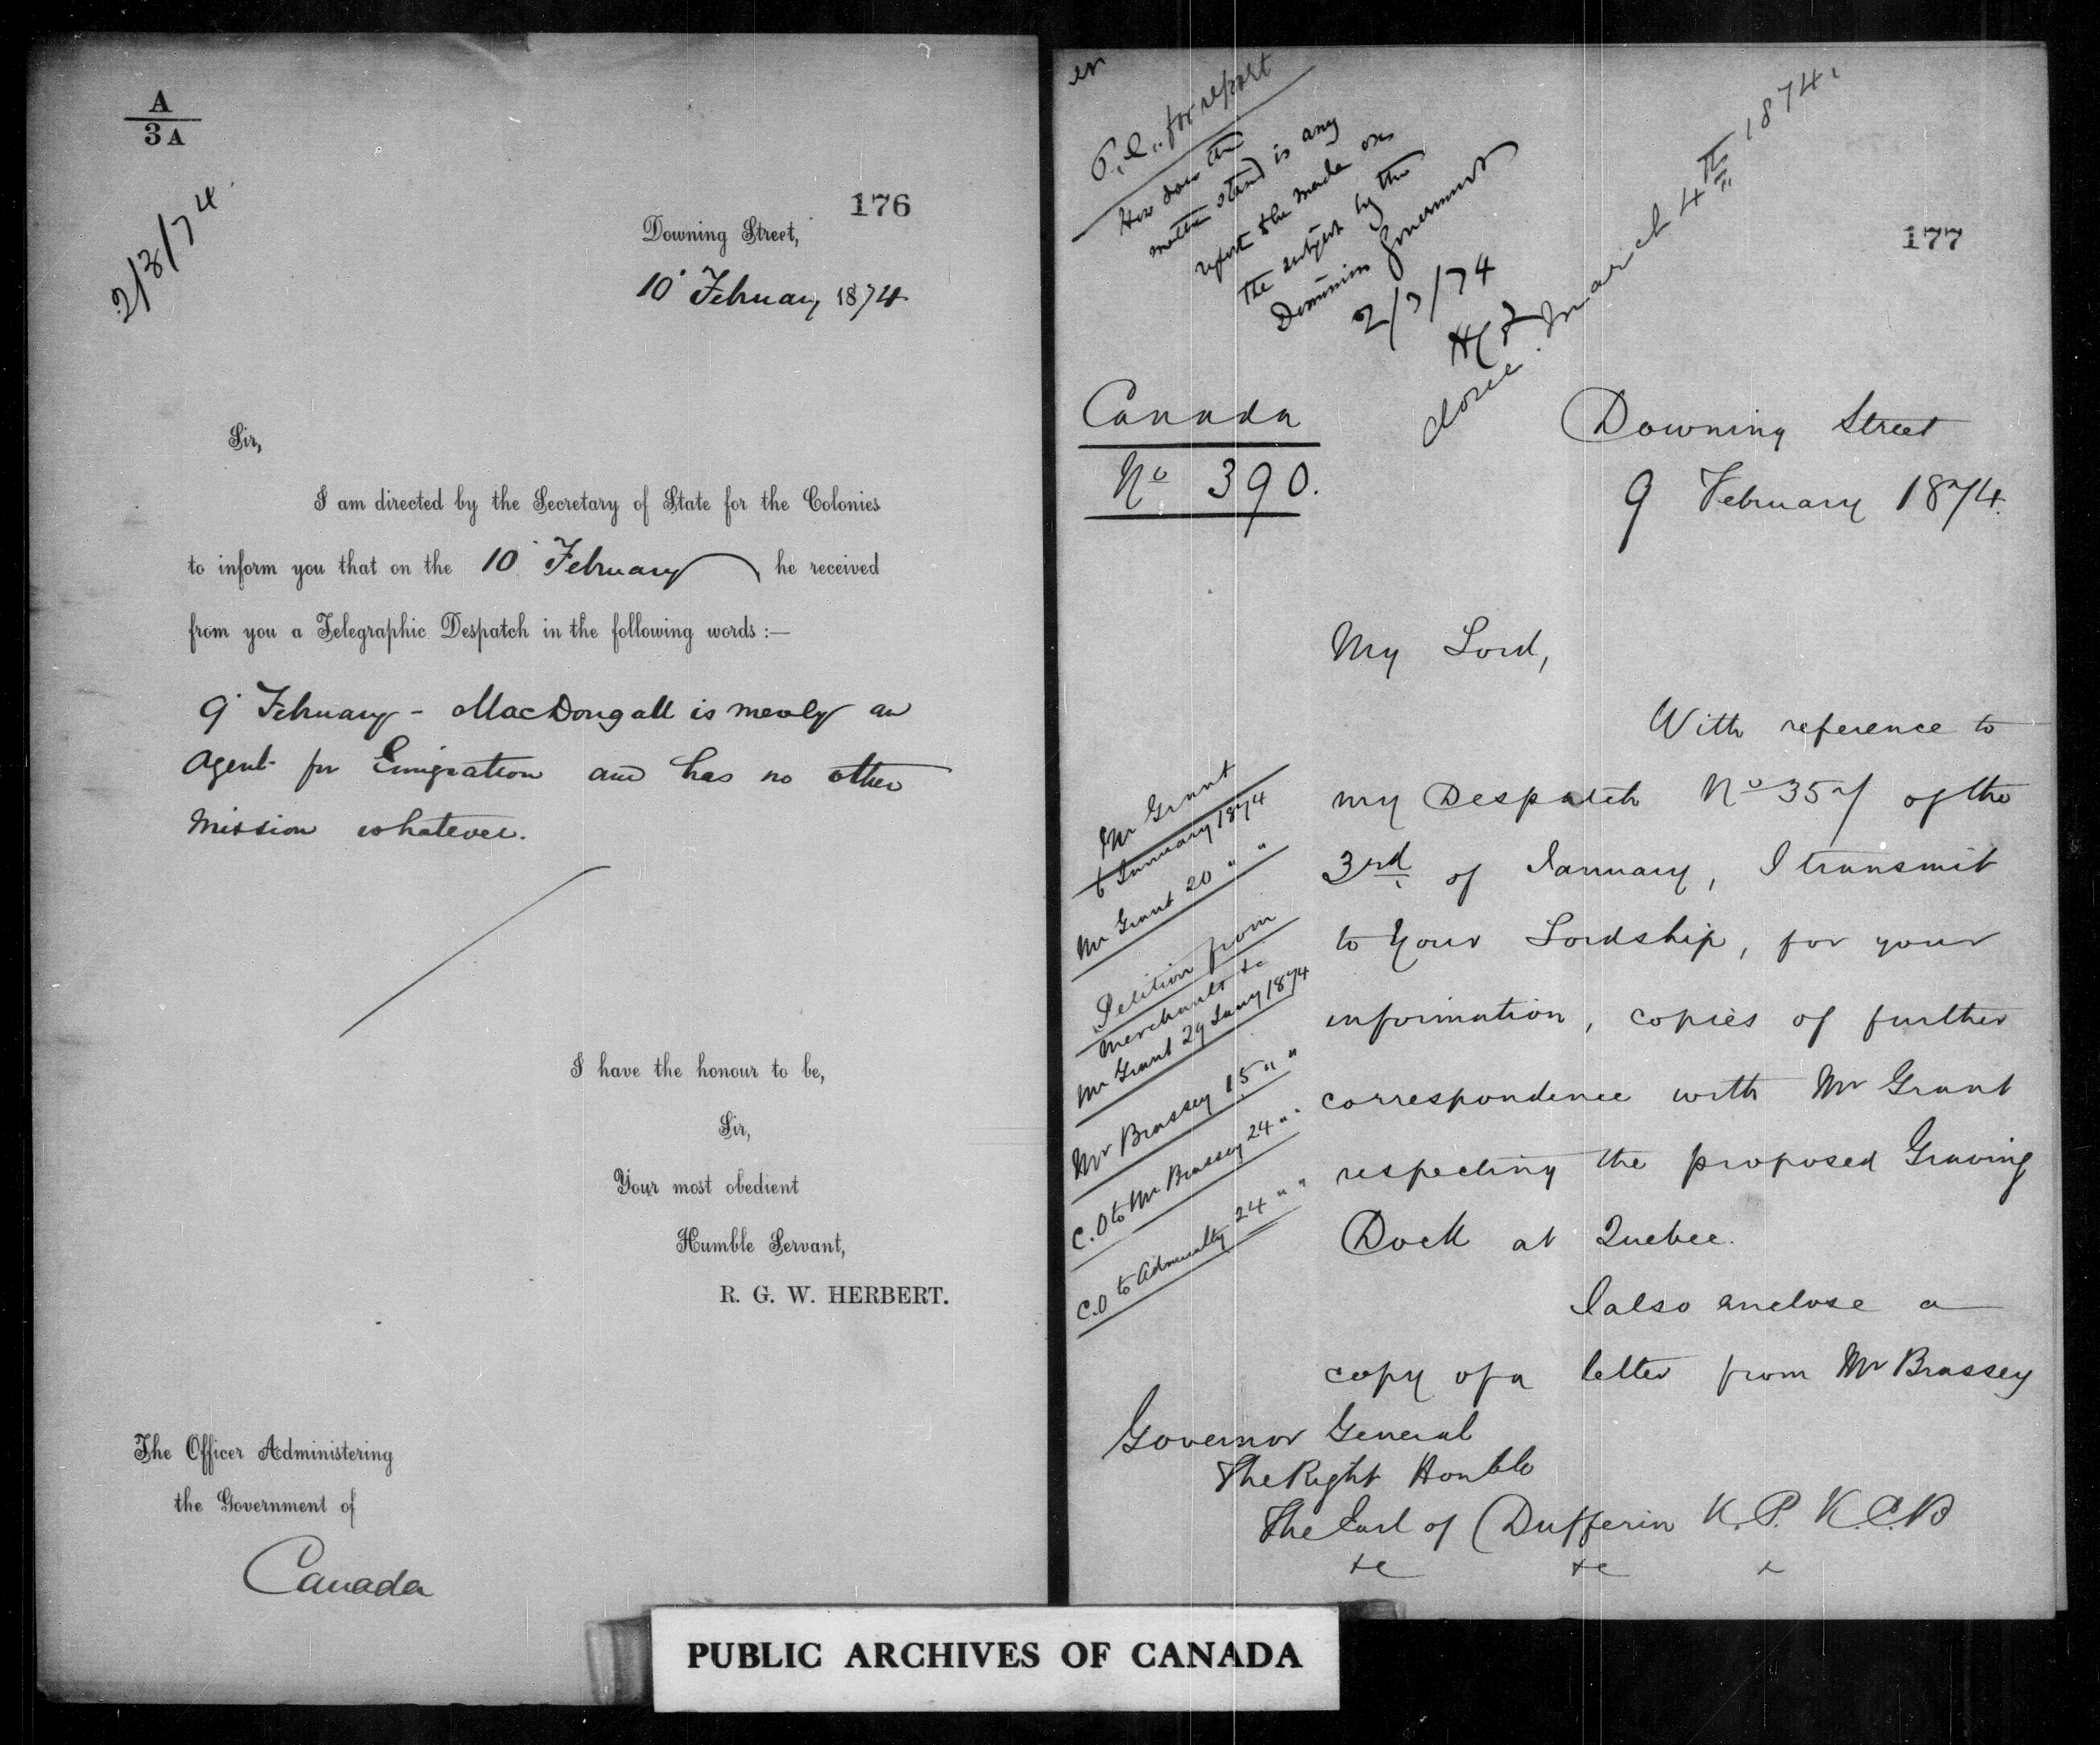 A
3A
2/3/74
176
Downing Street,
10 February 1874
Sir,
I am directed by the Secretary of State for the Colonies
to inform you that on the 10 February he received
from you a Telegraphic Despatch in the following words :—
9 February - MacDougall is merely an
Agent for Emigration and has no other
Mission whatever.
I have the honour to be,
Sir,
Your most obedient
Humble Servant,
R. G. W. HERBERT.
The Officer Administering
the Government of
Canada
P.C. for report
How does the
matter stand is any
report to be made on
the subject by the
Dominion Government
2/3/74
done March 4th 1874.
177
Canada
No 390.
Downing Street
9 February 1874.
My Lord,
With reference to
my Despatch No 357 of the
3rd of January, I transmit
to Your Lordship, for your
information, copies of further
correspondence with Mr Grant
respecting the proposed Graving
Dock at Quebec.
I also enclose a
copy of a letter from Mr Brassey
Mr Grant
6 January 1874
Mr Grant 20 " "
Petition from
Merchants &c
Mr Grant 29 Jany 1874
Mr Brassey 15 " "
C.O to Mr Brassey 24 " "
C.O to Admiralty 24 " "
Governor General
The Right Honble
The Earl of Dufferin K.P. K.C.B
&c &c &
PUBLIC ARCHIVES OF CANADA